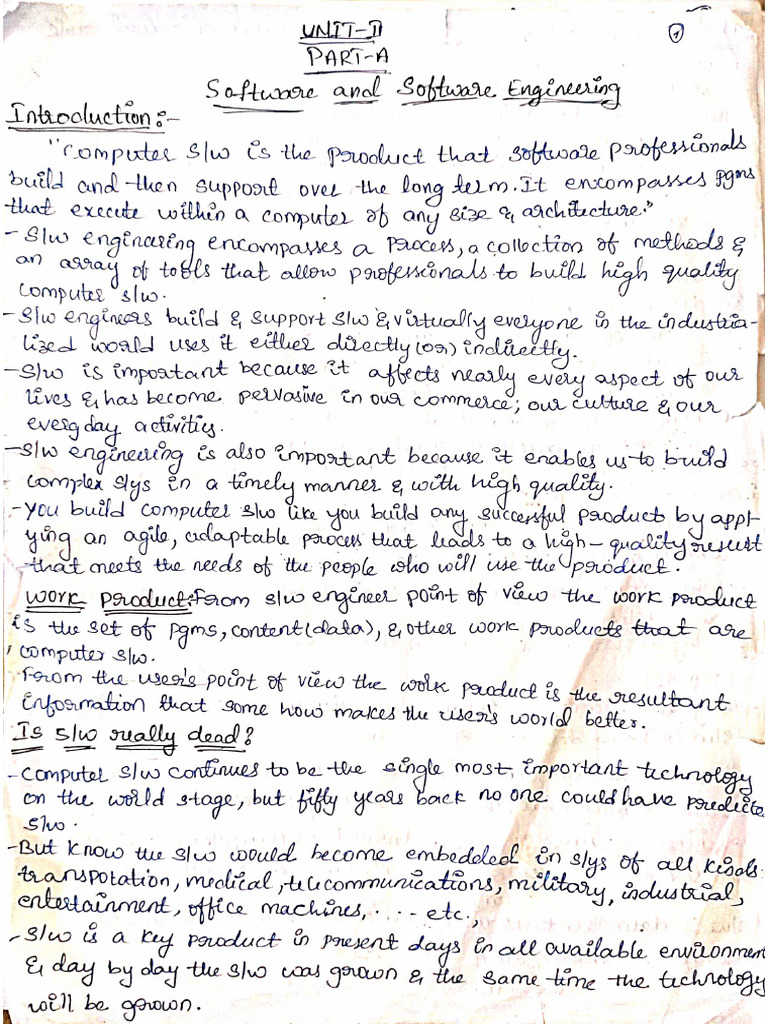 UNIT-I
①
PART-A
Software and Software Engineering
Introduction:-
"Computer S/w is the product that software professionals
build and then support over the long term. It encompasses pgms
that execute within a computer of any size & architecture."
- S/w engineering encompasses a process, a collection of methods &
an array of tools that allow professionals to build high quality
computer s/w.
- S/w engineers build & support s/w & virtually everyone in the industria-
lized world uses it either directly (or) indirectly.
- S/w is important because it affects nearly every aspect of our
lives & has become pervasive in our commerce, our culture & our
everyday activities.
- S/w engineering is also important because it enables us to build
complex s/ys in a timely manner & with high quality.
- You build computer s/w like you build any successful product by appl-
ying an agile, adaptable process that leads to a high-quality result
that meets the needs of the people who will use the product.
Work product: From s/w engineer point of view the work product
is the set of pgms, content (data), & other work products that are
computer s/w.
From the user's point of view the work product is the resultant
information that some how makes the user's world better.
Is s/w really dead?
- Computer s/w continues to be the single most important technology
on the world stage, but fifty years back no one could have predicte
s/w.
- But know the s/w would become embedded in s/ys of all kinds:
transpotation, medical, telecommunications, military, industrial,
entertainment, office machines, ..... etc.,
- S/w is a key product in present days in all available environment
& day by day the s/w was grown & the same time the technology
will be grown.